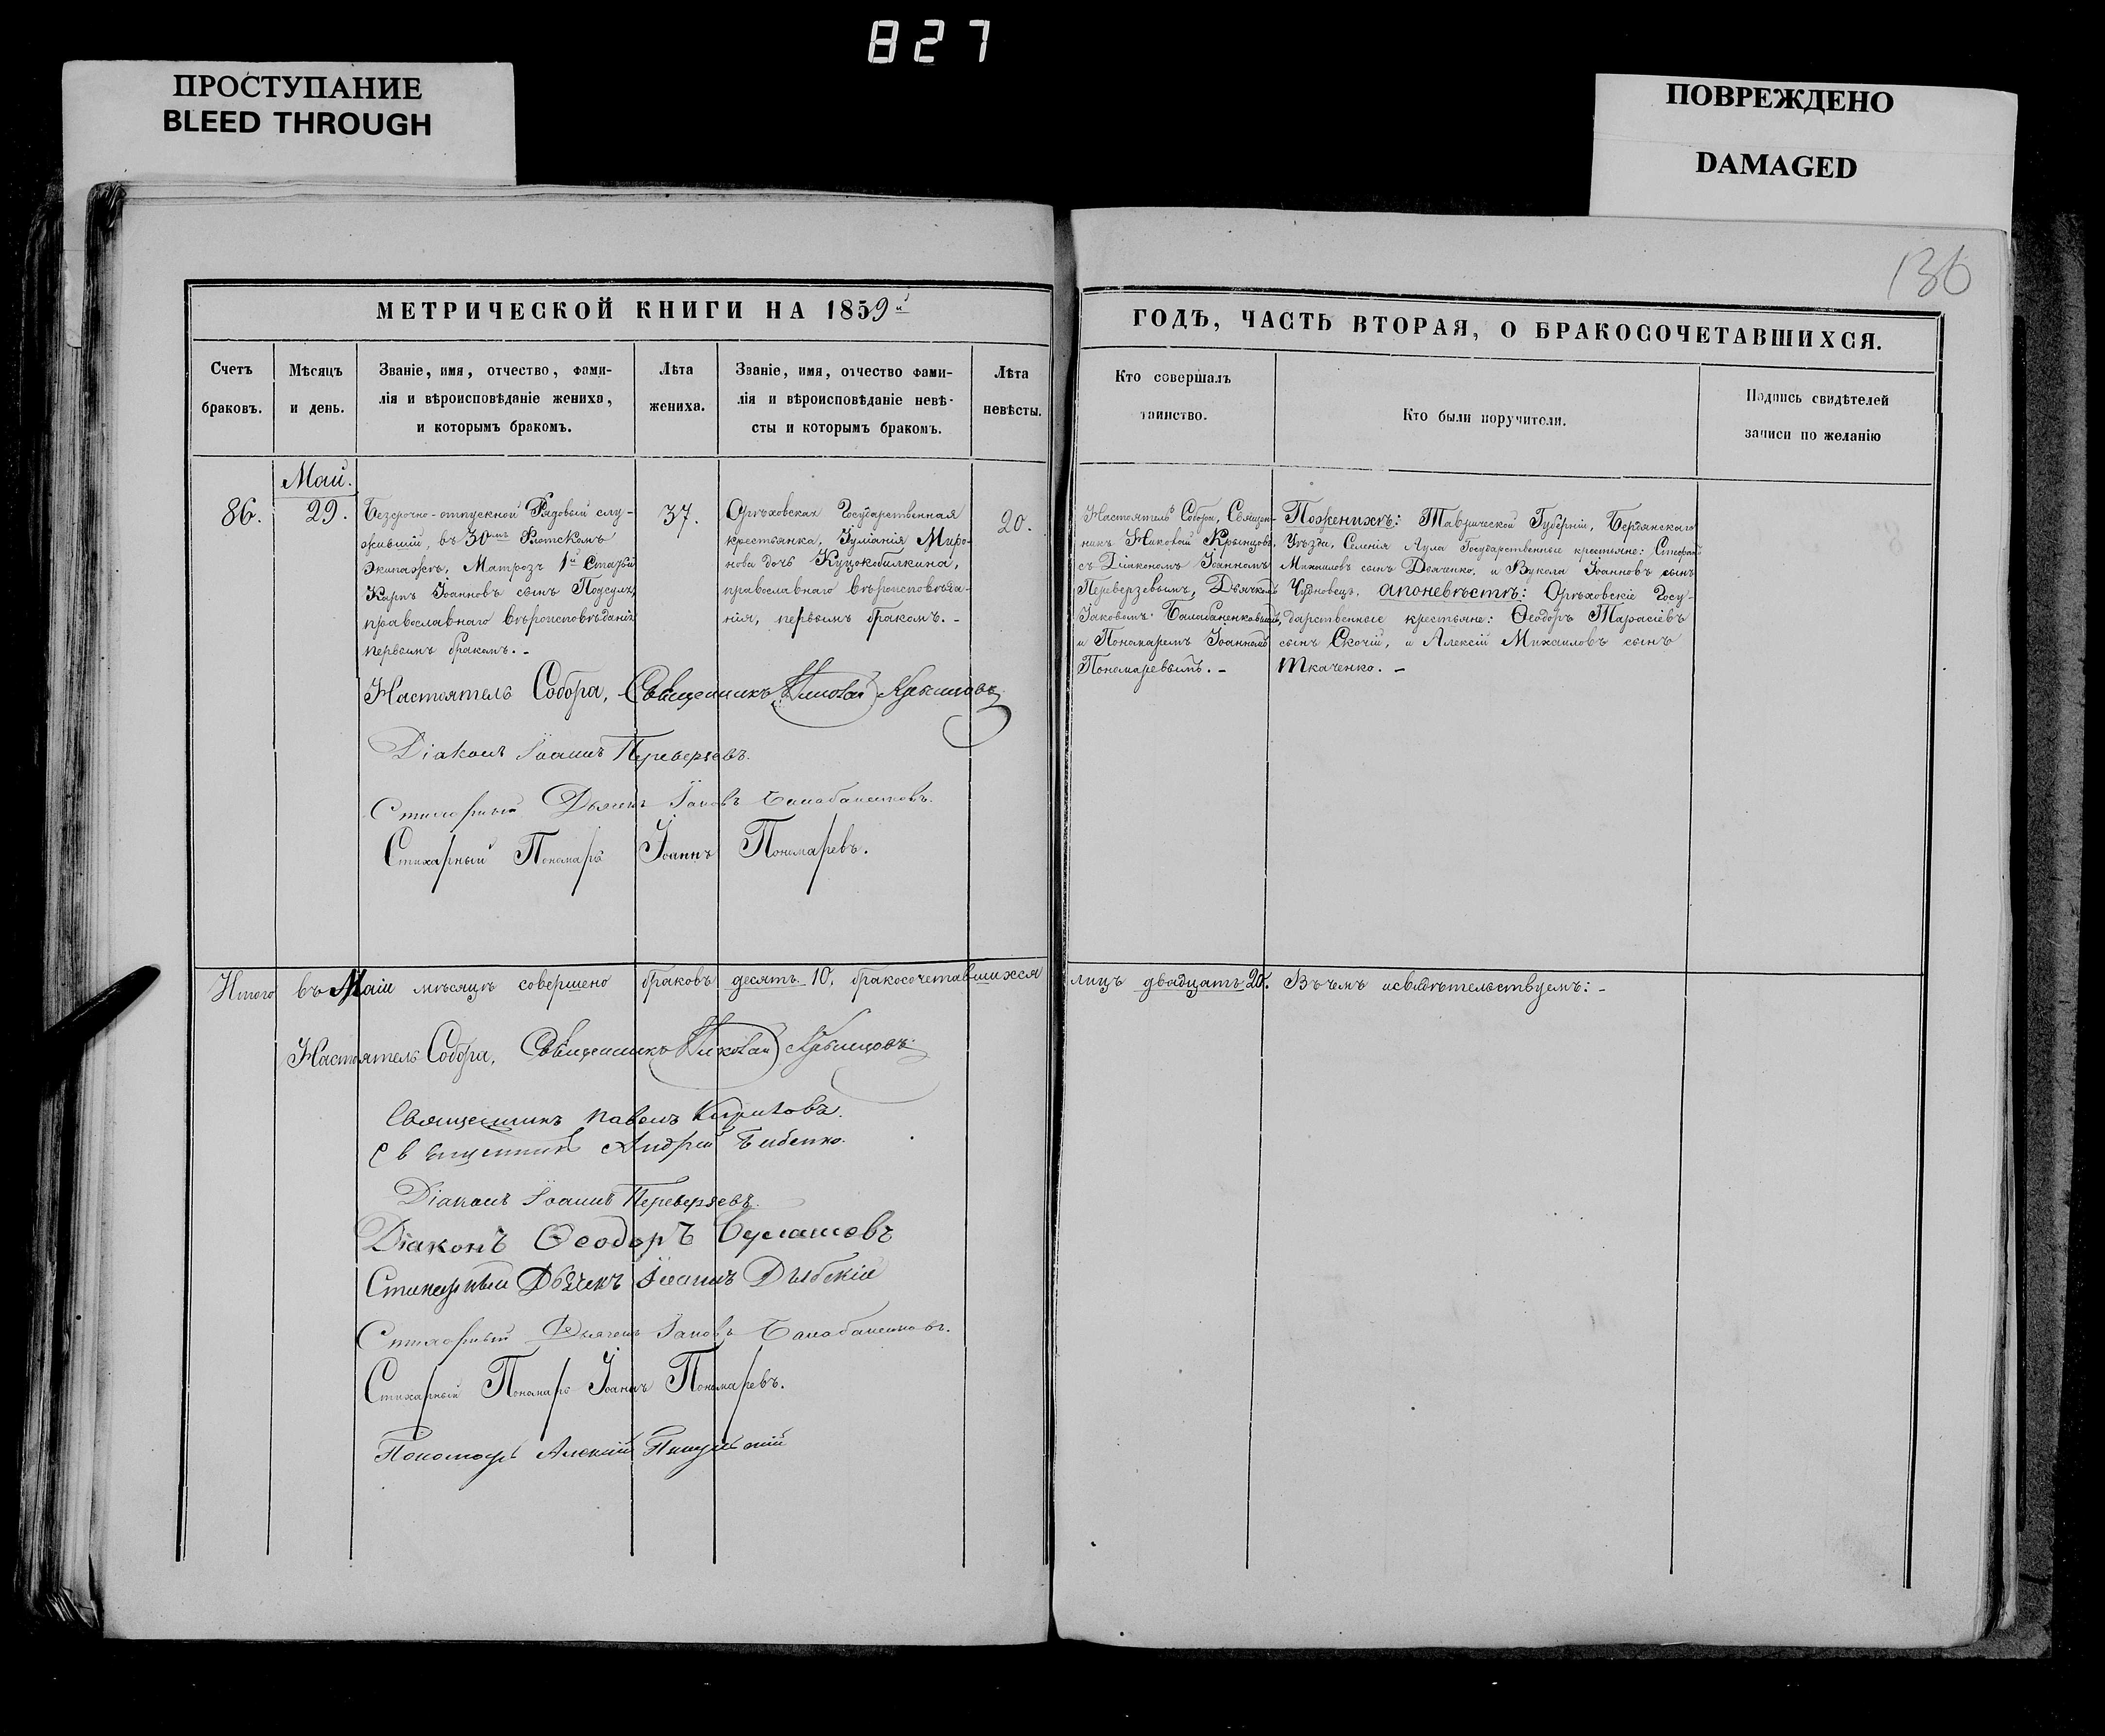 827
ПРОСТУПАНИЕ
BLEED THROUGH
ПОВРЕЖДЕНО
DAMAGED
136
МЕТРИЧЕСКОЙ КНИГИ НА 1859й
Счетъ
браковъ.
Мѣсяцъ
и день.
Званіе, имя, отчество, фами-
лія и вѣроисповѣданіе жениха,
и которымъ бракомъ.
Лѣта
жениха.
Званіе, имя, отчество фами-
лія и вѣроисповѣданіе невѣ-
сты и которымъ бракомъ.
Лѣта
невѣсты.
Май.
86.
29.
Безсрочно-отпускной Рядовый слу-
жившій, въ 30мъ Флотскомъ
Экипажѣ, Матрозъ 1й Статьи
Карпъ Іоанновъ сынъ Подсуха,
православнаго вѣроисповѣданія
первымъ бракомъ. -
37.
Орѣховская Государственная
крестьянка, Іуліанія Миро-
нова дочь Куцокобилкина,
православнаго вѣроисповѣда-
нія, первымъ бракомъ. -
20.
Настоятель Собора, Священникъ Николай Крынцовъ
Діаконъ Іоаннъ Переверзевъ.
Стихарный Дьячекъ Іаковъ Балабаненковъ.
Стихарный Пономарь Іоаннъ Пономаревъ.
Итого въ Маіи мѣсяцѣ совершено браковъ десять 10, бракосочетавшихся
Настоятель Собора, Священникъ Николай Крынцовъ
Священникъ Павелъ
Священникъ Андрей
Діаконъ Іоаннъ Переверзевъ.
Діаконъ Ѳеодоръ
Стихарный Дьячекъ Іоаннъ
Стихарный Дьячекъ Іаковъ Балабаненковъ.
Стихарный Пономарь Іоаннъ Пономаревъ.
Пономарь Алексій
ГОДЪ, ЧАСТЬ ВТОРАЯ, О БРАКОСОЧЕТАВШИХСЯ.
Кто совершалъ
таинство.
Кто были поручители.
Подпись свидѣтелей
записи по желанію
Настоятель Собора, Священ-
никъ Николай Крынцовъ,
съ Діакономъ Іоанномъ
Переверзевымъ, Дьячкомъ
Іаковомъ Балабаненковымъ,
и Пономаремъ Іоанномъ
Пономаревымъ. -
Поженихѣ: Таврической Губерніи, Бердянскаго
Уѣзда, Селенія Аула Государственные крестьяне: Стефанъ
Михаиловъ сынъ Дьяченко, и Вукола Іоанновъ сынъ
Чудновецъ, апоневѣстѣ: Орѣховскіе Госу-
дарственные крестьяне: Ѳеодоръ Тарасіевъ
сынъ Скочій, и Алексій Михаиловъ сынъ
Ткаченко. -
лицъ двадцать 20. Въ чемъ исвидѣтельствуемъ: -